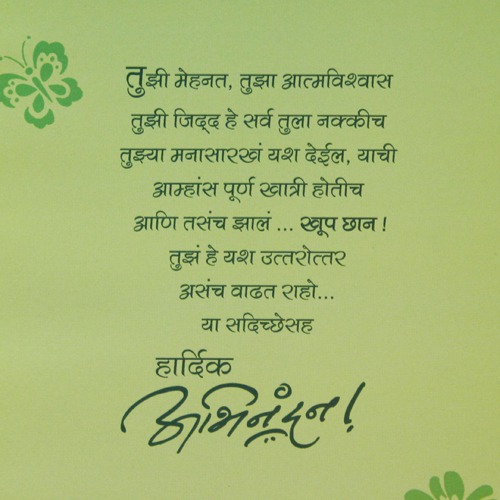 तुझी मेहनत, तुझा आत्मविश्वास
तुझी जिद्द हे सर्व तुला नक्कीच
तुझ्या मनासारखं यश देईल, याची
आम्हांस पूर्ण खात्री होतीच
आणि तसंच झालं ... खूप छान !
तुझं हे यश उत्तरोत्तर
असंच वाढत राहो...
या सदिच्छेसह
हार्दिक
अभिनंदन!